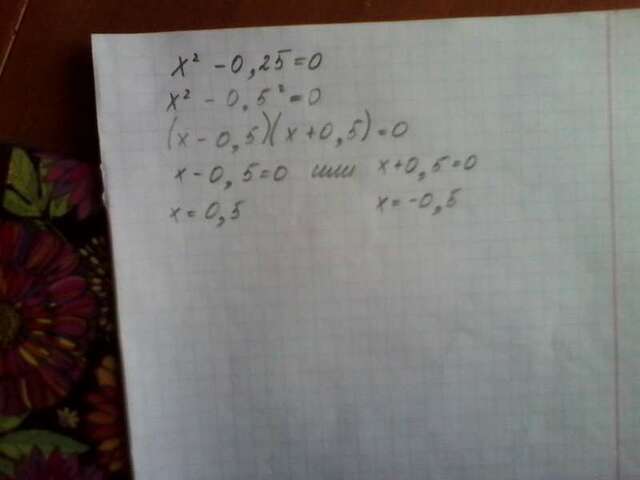 x² - 0,25=0
x² - 0,5²=0
(x-0,5)(x+0,5)=0
x-0,5=0 или x+0,5=0
x=0,5 x=-0,5